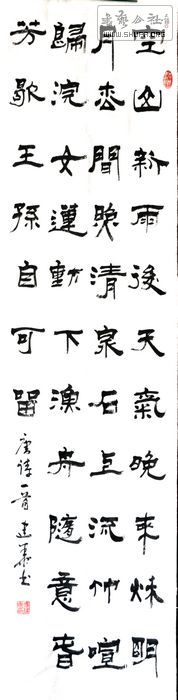 空山新雨後天氣晚來秋明
月松間照清泉石上流竹喧
歸浣女蓮動下漁舟隨意春
芳歇王孫自可留
唐詩一首 建華书